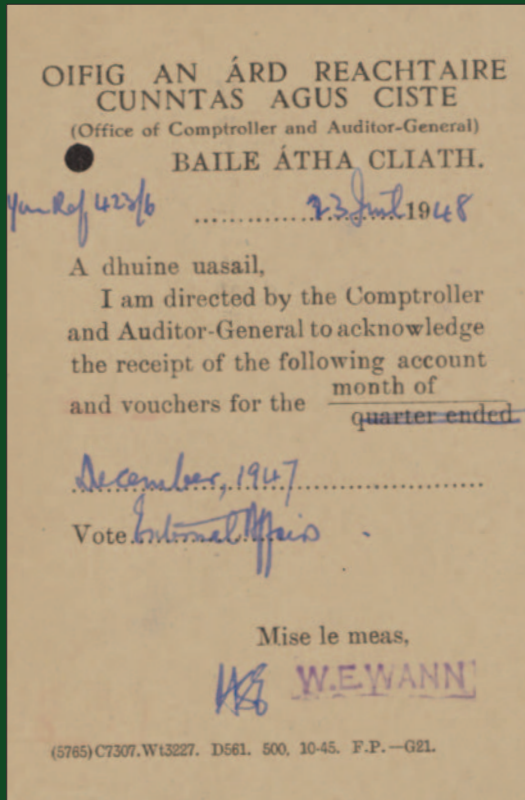 OIFIG AN ÁRD REACHTAIRE
CUNNTAS AGUS CISTE
(Office of Comptroller and Auditor-General)
BAILE ÁTHA CLIATH.
Your Ref 423/6
23 1948
A dhuine uasail,
I am directed by the Comptroller
and Auditor-General to acknowledge
the receipt of the following account
and vouchers for the month of
quarter ended
December, 1947
Vote External Affairs
Mise le meas,
W.E.WANN
(5765)C7307.Wt3227. D561. 500. 10-45. F.P.—G21.